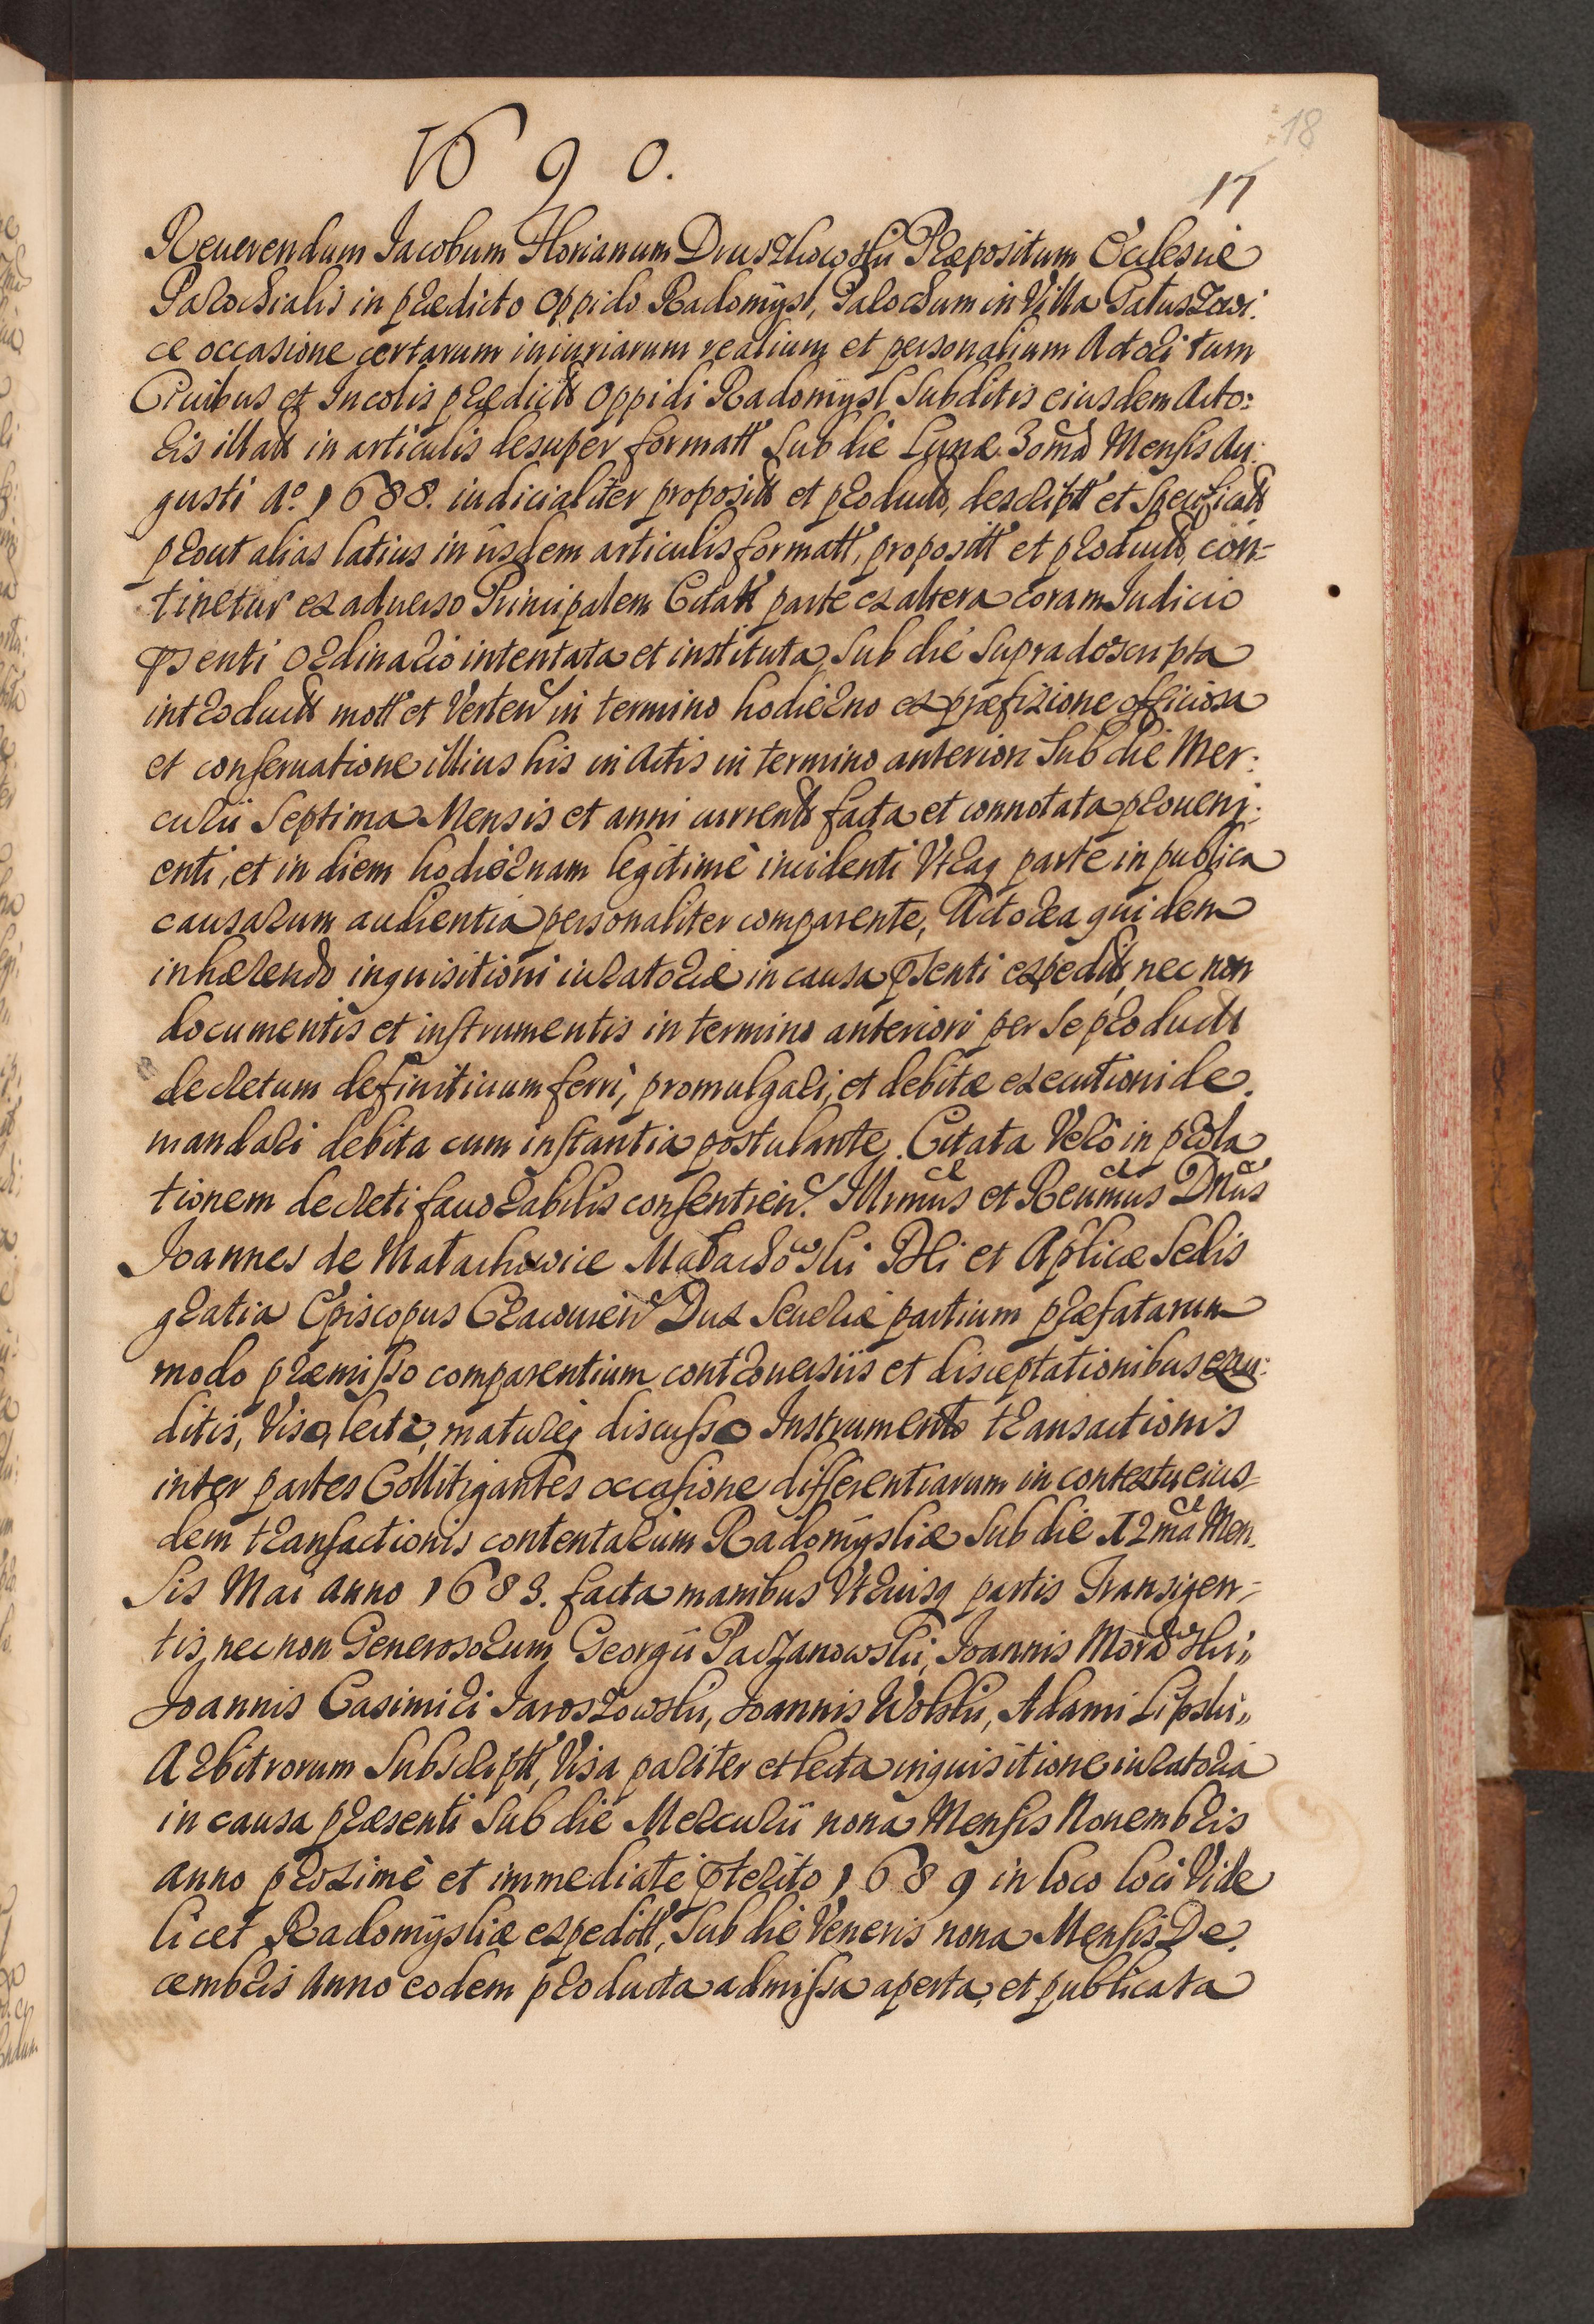 1690.
18
17
Reuerendum Jacobum Florianum Druszkowski Præpositum Ecclesiæ
Parochialis in prædicto oppido Radomÿsl, Parochum in Villa Patuszowi:
ce occasione certarum iniuriarum realium et personalium Actori tum
Ciuibus et Incolis prædicti oppidi Radomÿsl Subditis eiusdem Acto:
ris illatt in articulis desuper formatt Sub die Lunæ 30ma Mensis Au:
gusti Aº. 1688. iudicialiter propositt et productt, descriptt et Specificatt
prout alias latius in iisdem articulis formatt, propositt et productt, con=
tinetur ex aduerso Principalem Citatt parte ex altera coram Judicio
pnti ordinario intentata et instituta, Sub die Supradescripta
introductt mott et Verten in termino hodierno ex præfixione officiosa
et conseruatione illius his in Actis in termino anteriori Sub die Mer:
curii Septima Mensis et anni currentt facta et connotata proueni:
enti, et in diem hodiernam legitimè incidenti Vtraq parte in publica
causarum audientia personaliter comparente, Actorea quidem
inhærendo inquisitioni iuratoriæ in causa psenti expeditt, nec non
documentis et instrumentis in termino anteriori per Se productt
decretum definitiuum ferri, promulgari, et debitæ executioni de:
mandari debita cum instantia postulante. Citata Verò in prola
tionem decreti fauorabilis consentien. Illrmus et Reumus Dnus
Joannes de Małachowice Małachowski DEi et Aplicæ Sedis
gratia Episcopus Cracouien Dux Seueriæ partium præfatarum
modo præmisso comparentium controuersiis et disceptationibus exau:
ditis, Viso, lecto, matureq discusso Instrumento transactionis
inter partes Collitigantes occasione differentiarum in contextu eius=
dem transactionis contentarum Radomÿsliæ Sub die 12ma Men.
sis Mai anno 1689. facta manibus Vtriusq partis Transigen=
tis, nec non Generosorum Georgii Paczanowski, Joannis Morski,
Joannis Casimiri Jaroszowski, Joannis Wolski, Adami Lipski,
Arbitrorum Subscriptt, Visa pariter et lecta inquisitione iuratoria
in causa præsenti Sub die Mercurii nona Mensis Nouembris
anno proximè et immediatè pterito 1689 in loco loci Vide
licet Radomÿsliæ expeditt, Sub die Veneris nona Mensis De:
cembris Anno eodem producta admissa aperta, et publicata